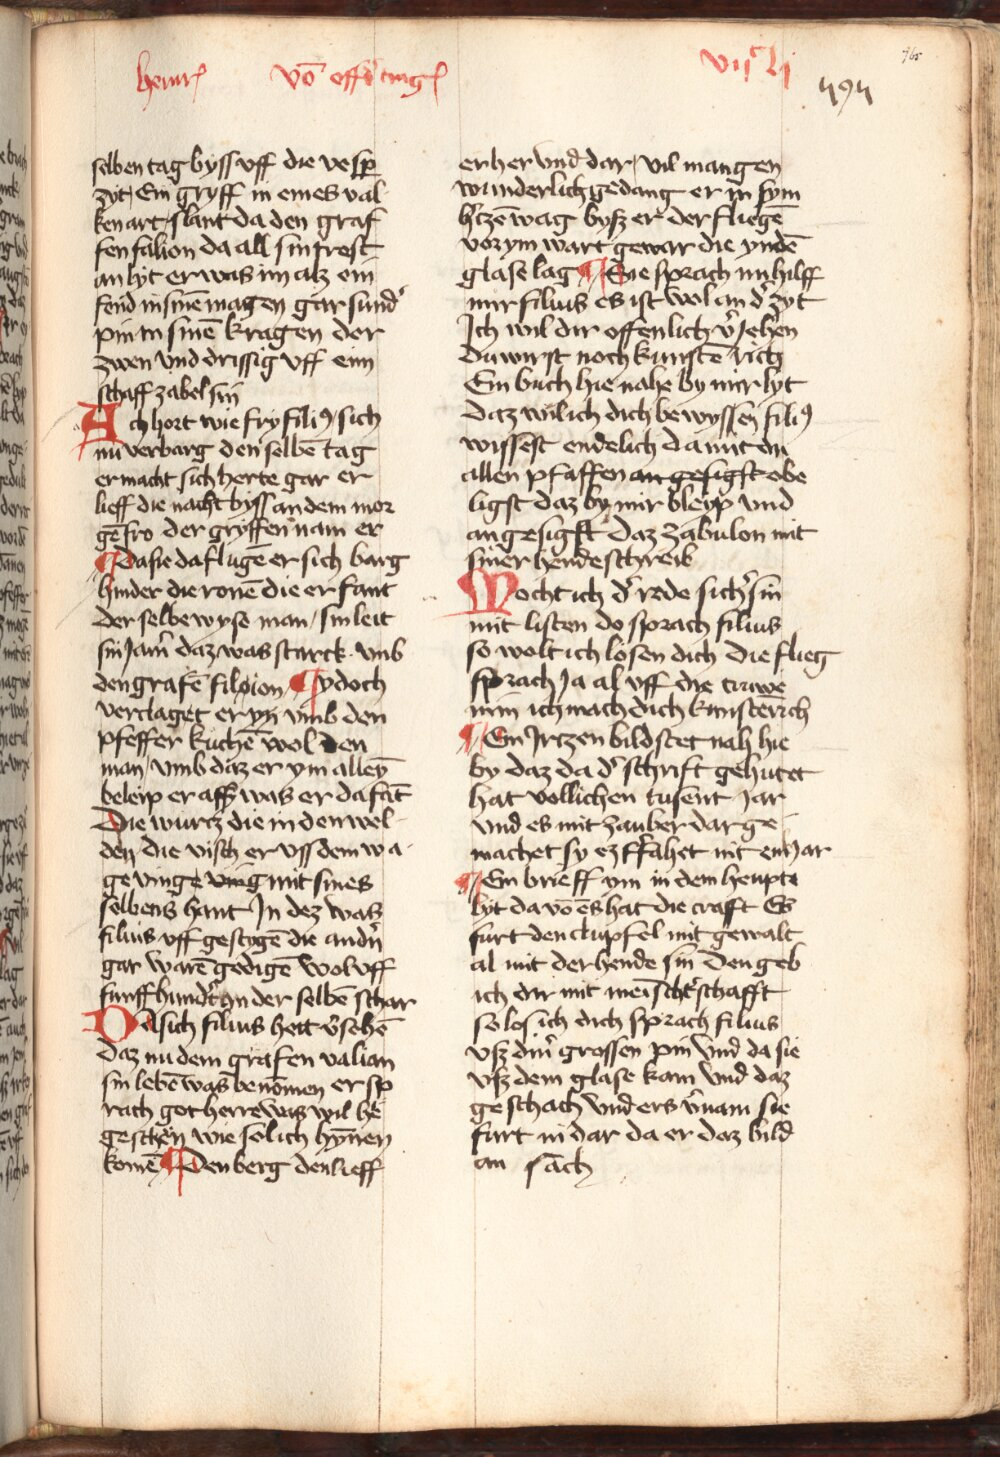 heinrꝭ vō offʼtingꝭ vijᶜ lj
765
797
selben tag byss vff die vesꝑ
zyt / Ein gryff in eines val
ken art / slant da den graf
fen falion da all sin frost
an lyt er was im alz ein
fend in sinē magen gar sundʼ
pin in sinē kragen der
zwen vnd drissig vff eim
schaffzabel sin
Ach hort wie fry filiꝰ sich
nu verbarg den selbē tag
er macht sich herte gar er
lieff die nacht byss an dem mor
gē fro der gryffen nam er
¶ Da sie da flugē er sich barg
hinder die ronē die er fant
der selbe wyse man / sin leit
sin Jamʼ daz was starck vmb
den grafē filoion ¶ ydoch
verclaget er yn vmb den
pfeffer kuchē wol den
man / vmb daz er ym alleȳ
beleip er aß was er da fāt
Die wurtz die in den wel
den die visch er vss dem wa
ge vinge ving mit sines
selbens hant In dez was
filius vff gestigē die andʼn
gar warē gedigē wol vff
funffhundʼt in der selbē schar
Da sich filius hett vʼsehē
daz nu dem grafen valian
sin lebē was benōmen er sp
rach got herre was wil hē
geschen wie sol ich hynnen
komē ¶ Den berg den lieff
er her vnd dar / vil mangen
wunderlich gedang er in sym
hʼtzē wag bysz er der fliegē
vor ym wart gewar die yndē
glase lag ¶ Ene sprach nu hilff
mir filius es ist wol an dʼ zyt
Ich wil dir offenlich vʼjehen
du wirst noch kunstē rich
Ein buch hie nahe by mir lyt
daz wil ich dich bewyssen filiꝰ
wissest endelich da mit du
allen pfaffen an gesigst obe
ligst daz by mir bleyp vnd
an gesigst daz zabulon mit
siner hende schreib
Mocht ich dʼ rede sichʼ sin
mit listen do sprach filius
so wolt ich lösen dich die flieg
sprach Ja al vff die truwe
min ich mach dich kunstērich
¶ Ein Jrtzen bild stet nah hie
by daz da dʼ schrift gehutet
hat vollichen tusent Jar
vnd es mit zauber dar ge
machet sy ez fʼfahet nit ein har
¶ Ein brieff ym in dem heupte
lyt da vō es hat die crafft Es
furt den clupfel mit gewalt
al mit der hende sin Den geb
ich dir mit meisterschafft
so los ich dich sprach filius
vsz dinʼ grossen pin vnd da sie
vsz dem glase kam vnd daz
geschach vnd ers vʼnam sie
furt in dar da er daz bild
an sach